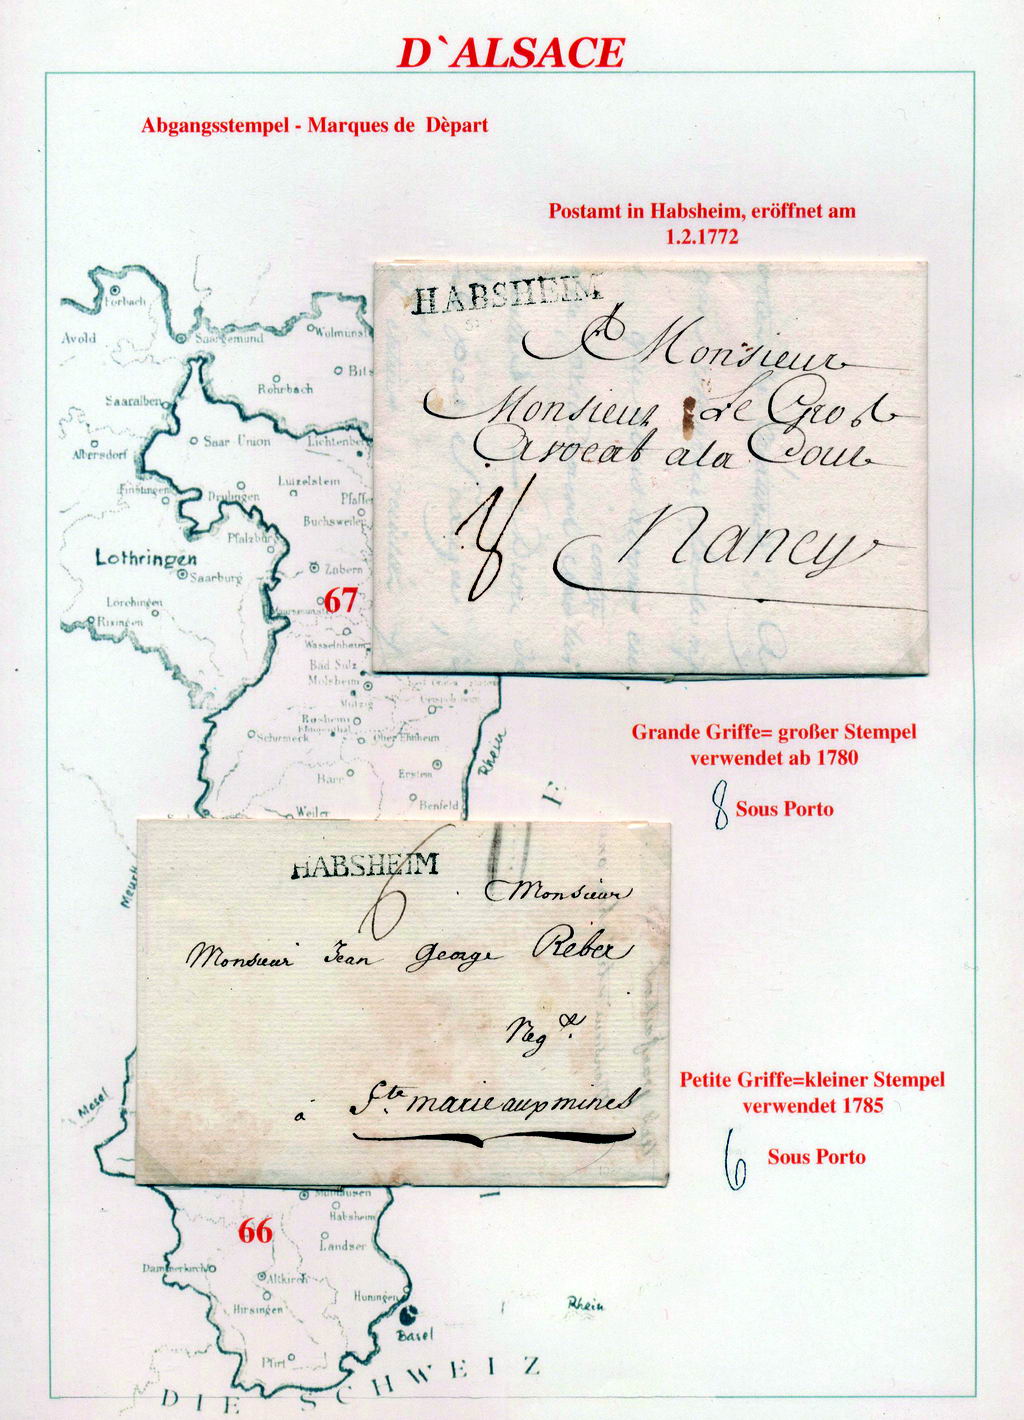 D`ALSACE
Abgangsstempel - Marques de Dèpart
Postamt in Habsheim, eröffnet am
1.2.1772
HABSHEIM
A Monsieur
Monsieur Le Gros
Avocat a la Cour
8 Nancy
Forbach
Avold
Saargemund
Wolmunst
Bits
Rohrbach
Saaralben
Saar-Union
Lichtenber
Albersdorf
Lutzelstein
Finstingen
Drulingen
Pfaffe
Buchsweiler
Pfalzburg
Lothringen
Saarburg
Zabern
67
Lörchingen
Rixingen
Wasselnheim
Bad Sulz
Molsheim
Mutzig
Rosheim
Schirmeck
Ober Ehnheim
Rhein
Barr
Erstein
Benfeld
Weiler
Grande Griffe= großer Stempel
verwendet ab 1780
8 Sous Porto
Meurth
HABSHEIM
6
Monsieur
Monsieur Jean George Reber
Neg.
à Ste. marie aux mines
Mosel
Petite Griffe=kleiner Stempel
verwendet 1785
6 Sous Porto
Mülhausen
Habsheim
66
Landser
Dammerkirch
Altkirch
Hirsingen
Huningen
Rhein
Basel
Pfirt
DIE SCHWEIZ